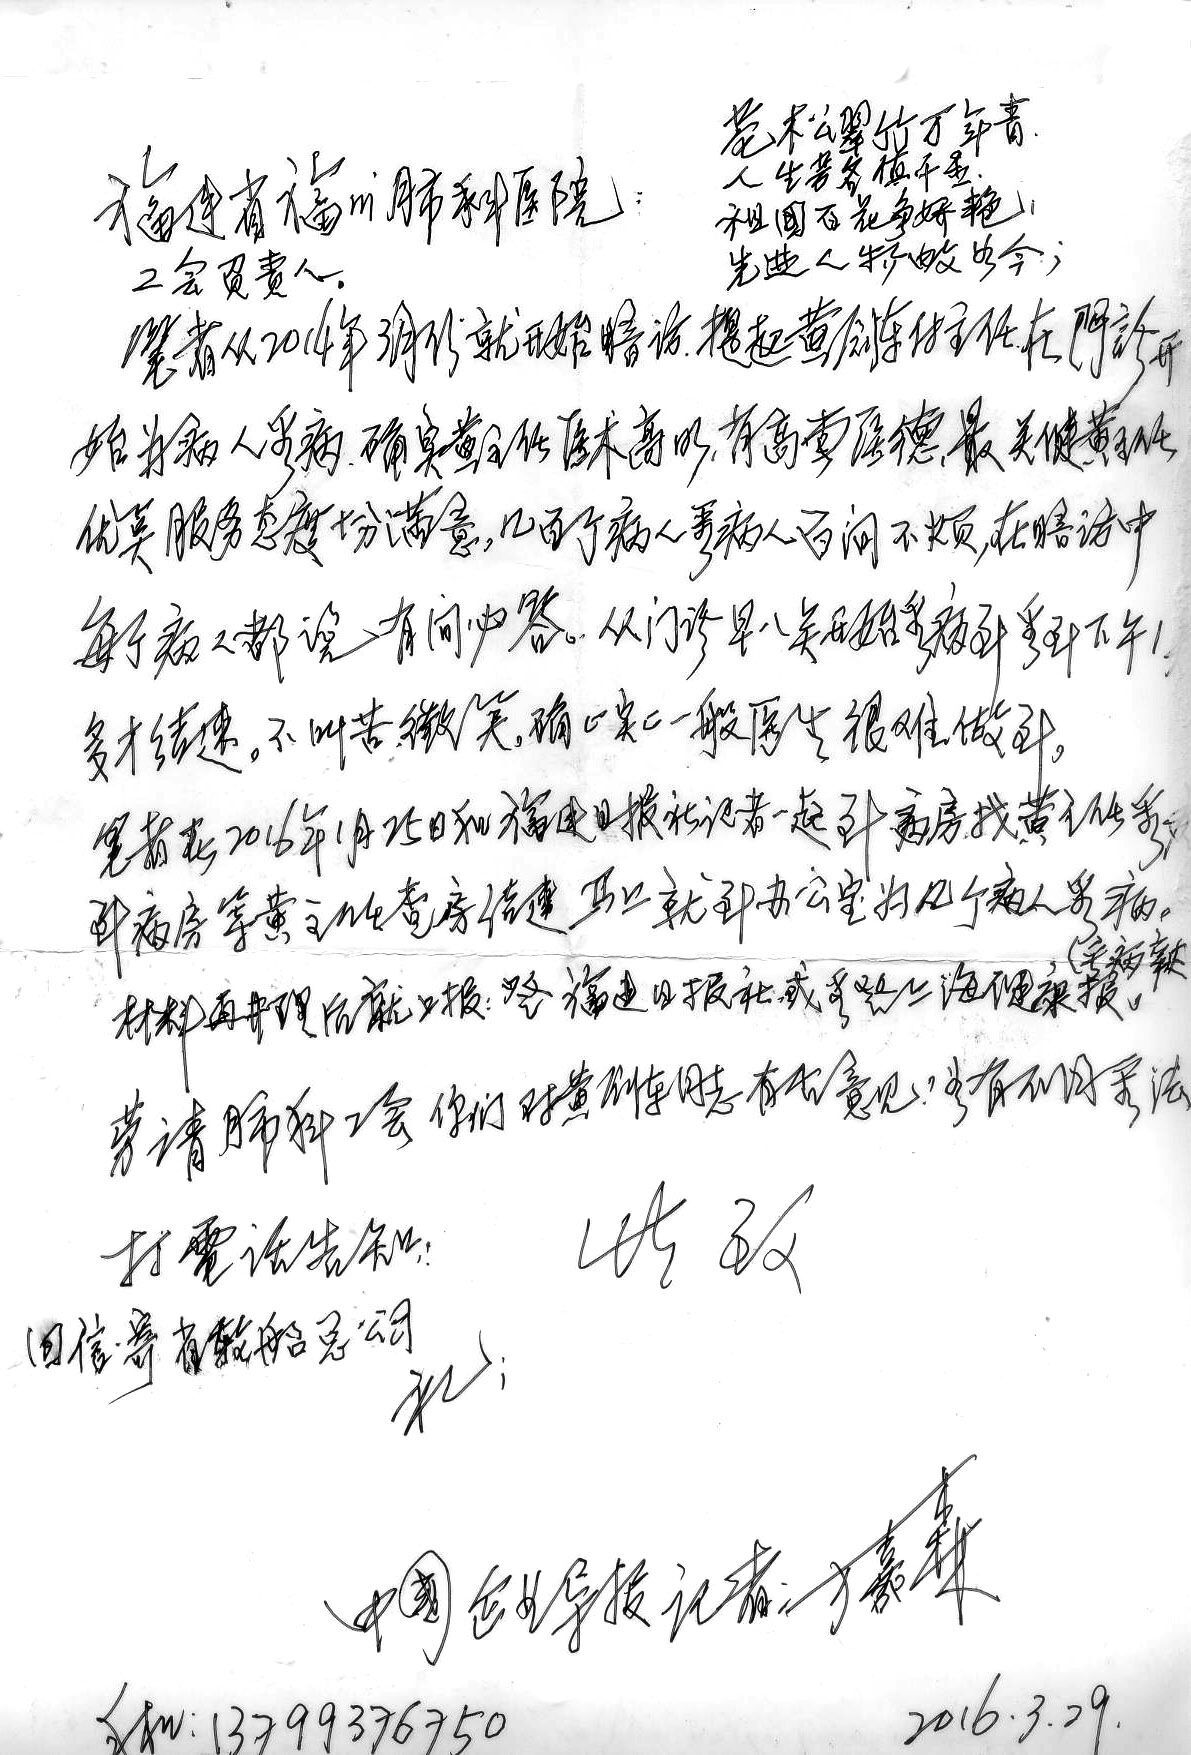 苍松翠竹万年青.
人生苦
祖国百花争娇艳;
先进人物
福建省福州肺科医院:
工会负责人。
笔者从2014年3月份就开始暗访.提起黄 主任.在門診开
始为病人看病.确实黄主任医术高明,有高尚医德,最关健黄主任
优美服务态度十分满意,几百个病人看病人百问不烦,在暗访中
每个病人都说 有问必答。从门诊早八矣开始看病到 到下午1
多才结速。不叫苦,微笑。确确实实一般医生很难做到。
笔者在2016年1月25日和福建日报社记者一起到病房找黄主任看
到病房等黄主任查房结速 马上就到办公室为几个病人看病。
材料再 理后 报: 福建日报社,或 上海健康报。
劳请肺科工会 你们对黄 同志有 意见? 有不同 法
打電话告知:
此致
回信.寄省 船总公司
礼;
中國企业导报记者:方嘉霖
手机:13799376750
2016.3.29.